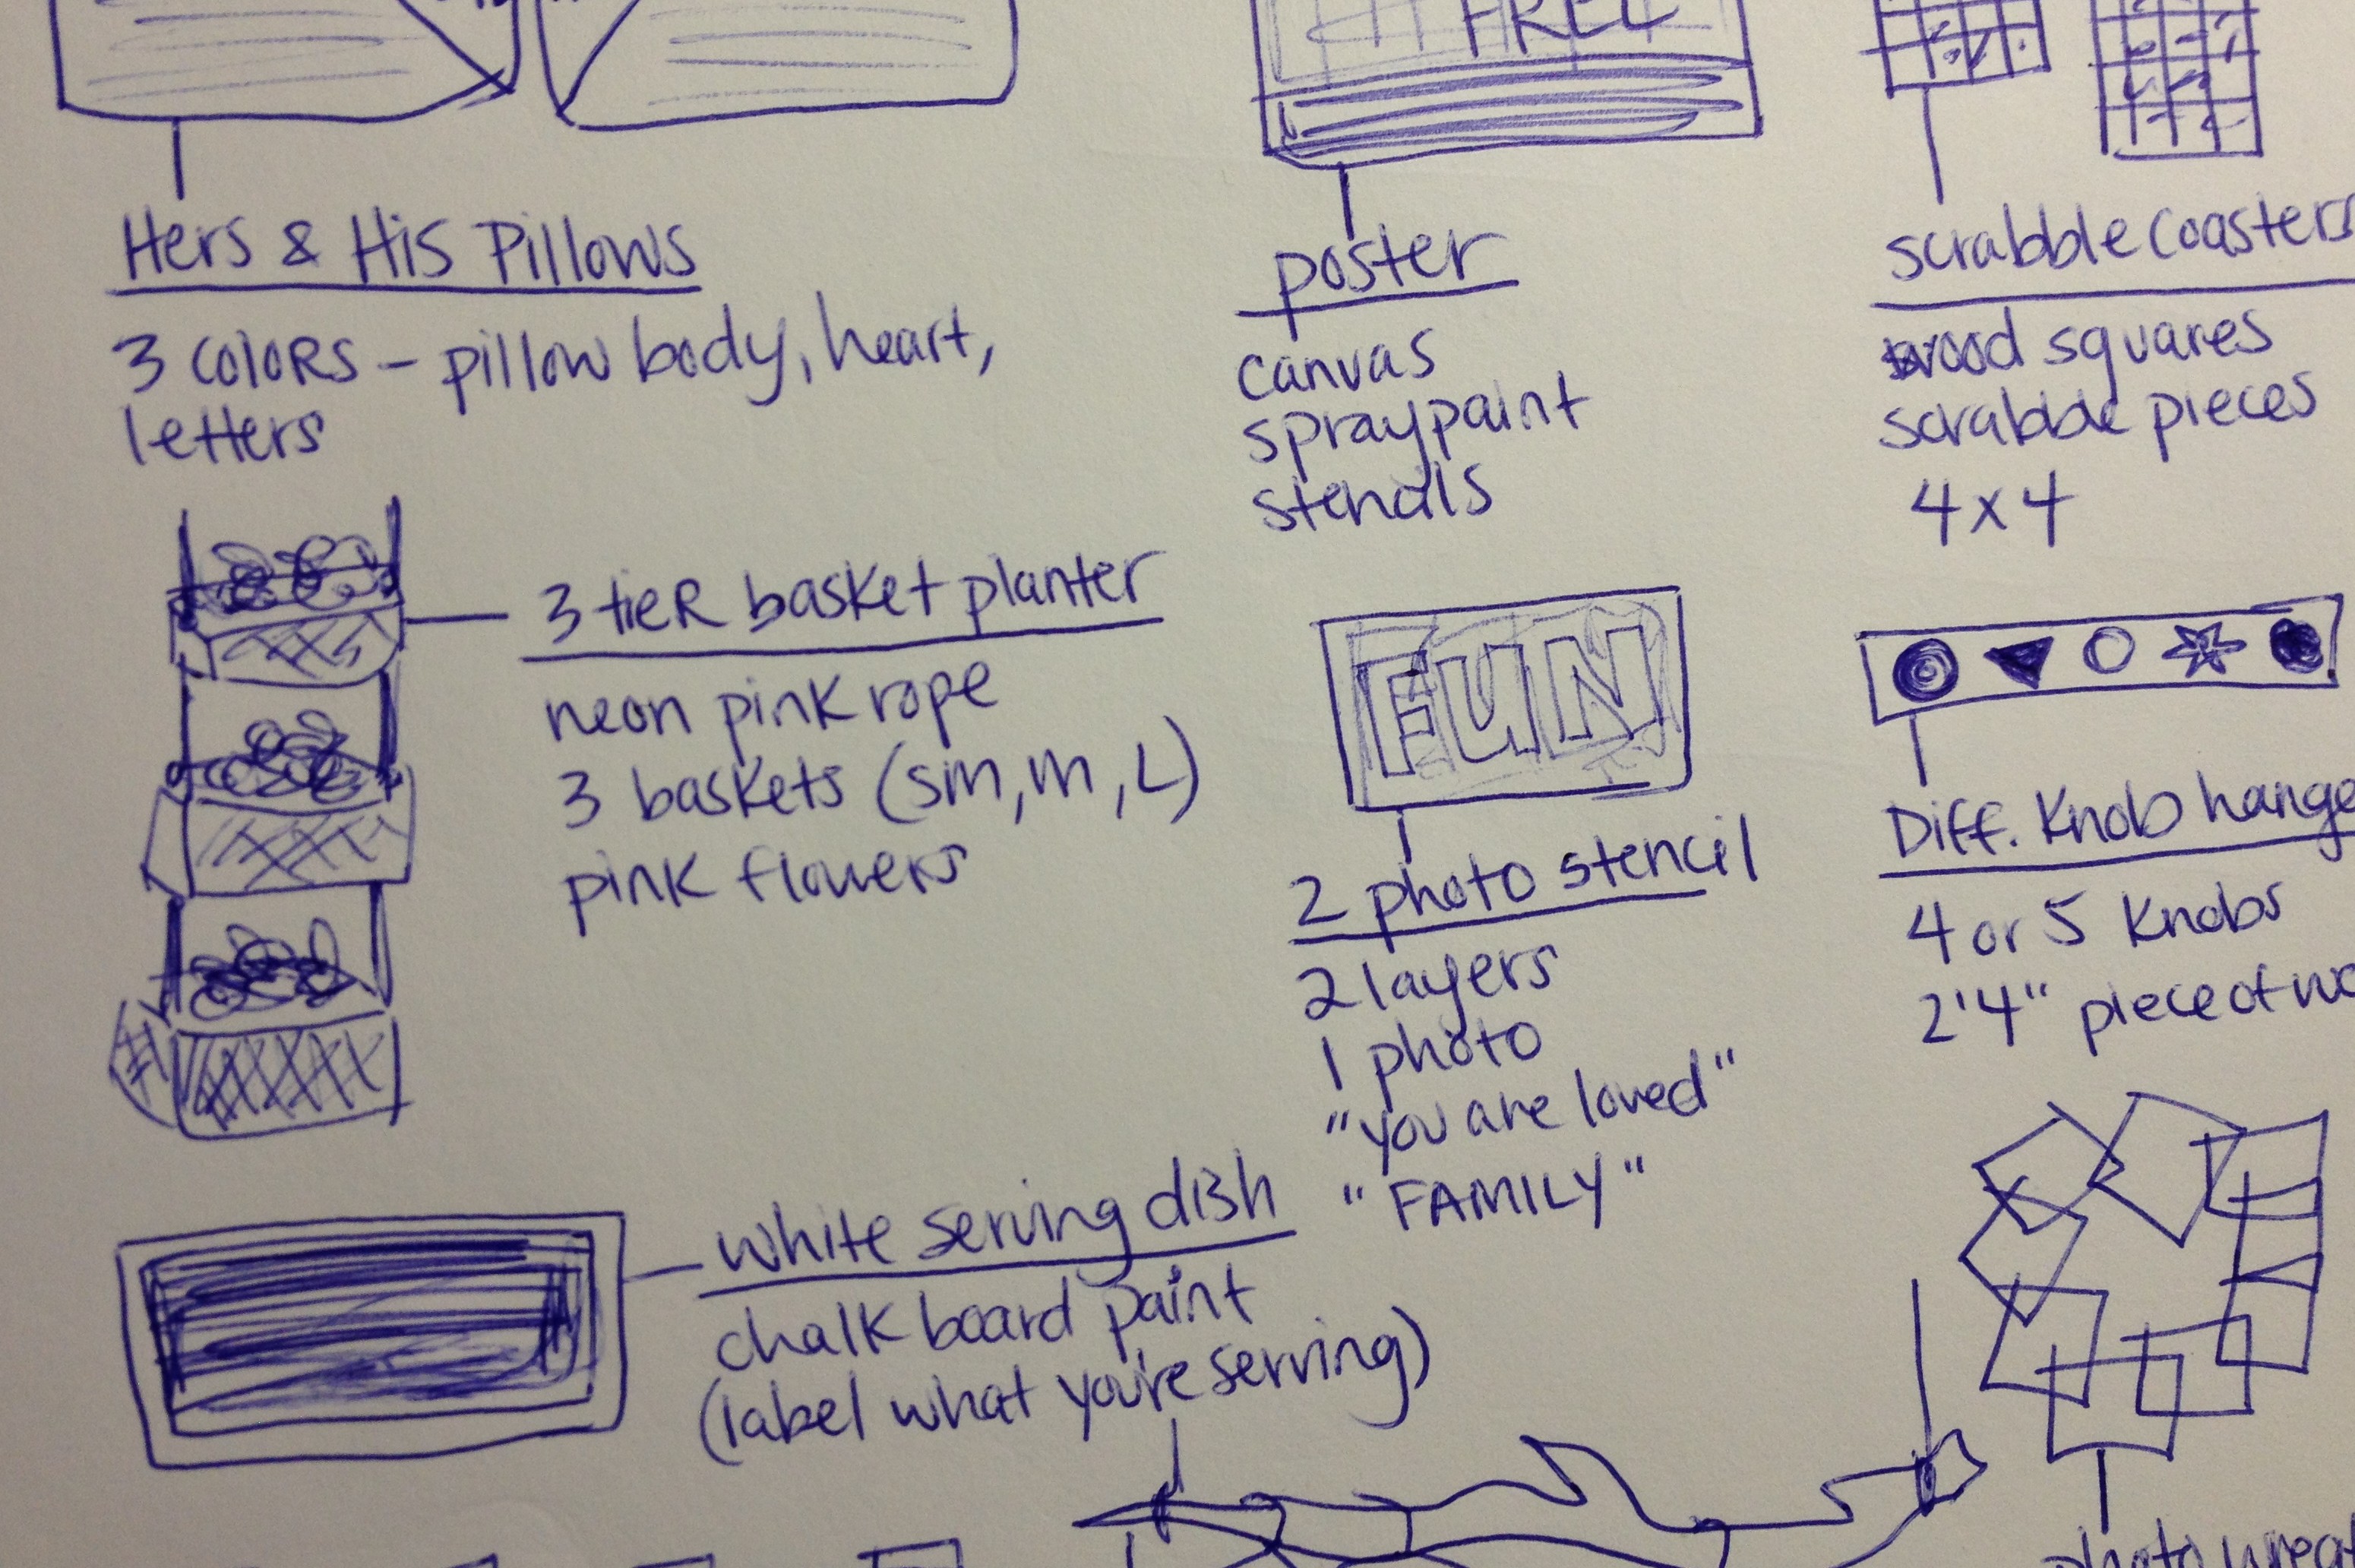 FREE
Hers & His Pillows
3 colors – pillow body, heart,
letters
poster
canvas
spraypaint
stencils
scrabble coasters
wood squares
scrabble pieces
4x4
3 tier basket planter
neon pink rope
3 baskets (sm, m, L)
pink flowers
FUN
2 photo stencil
2 layers
1 photo
"you are loved"
"FAMILY"
Diff. Knob
4 or 5 Knobs
2'4" piece of
white serving dish
chalk board paint
(label what you're serving)
photo